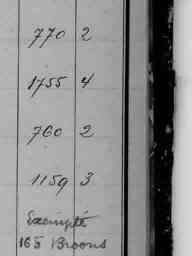 770 2
1755 4
760 2
1159 3
Exempté
165 Broons